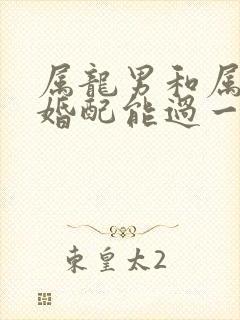 属龍男和属
婚配能過一
東皇太2